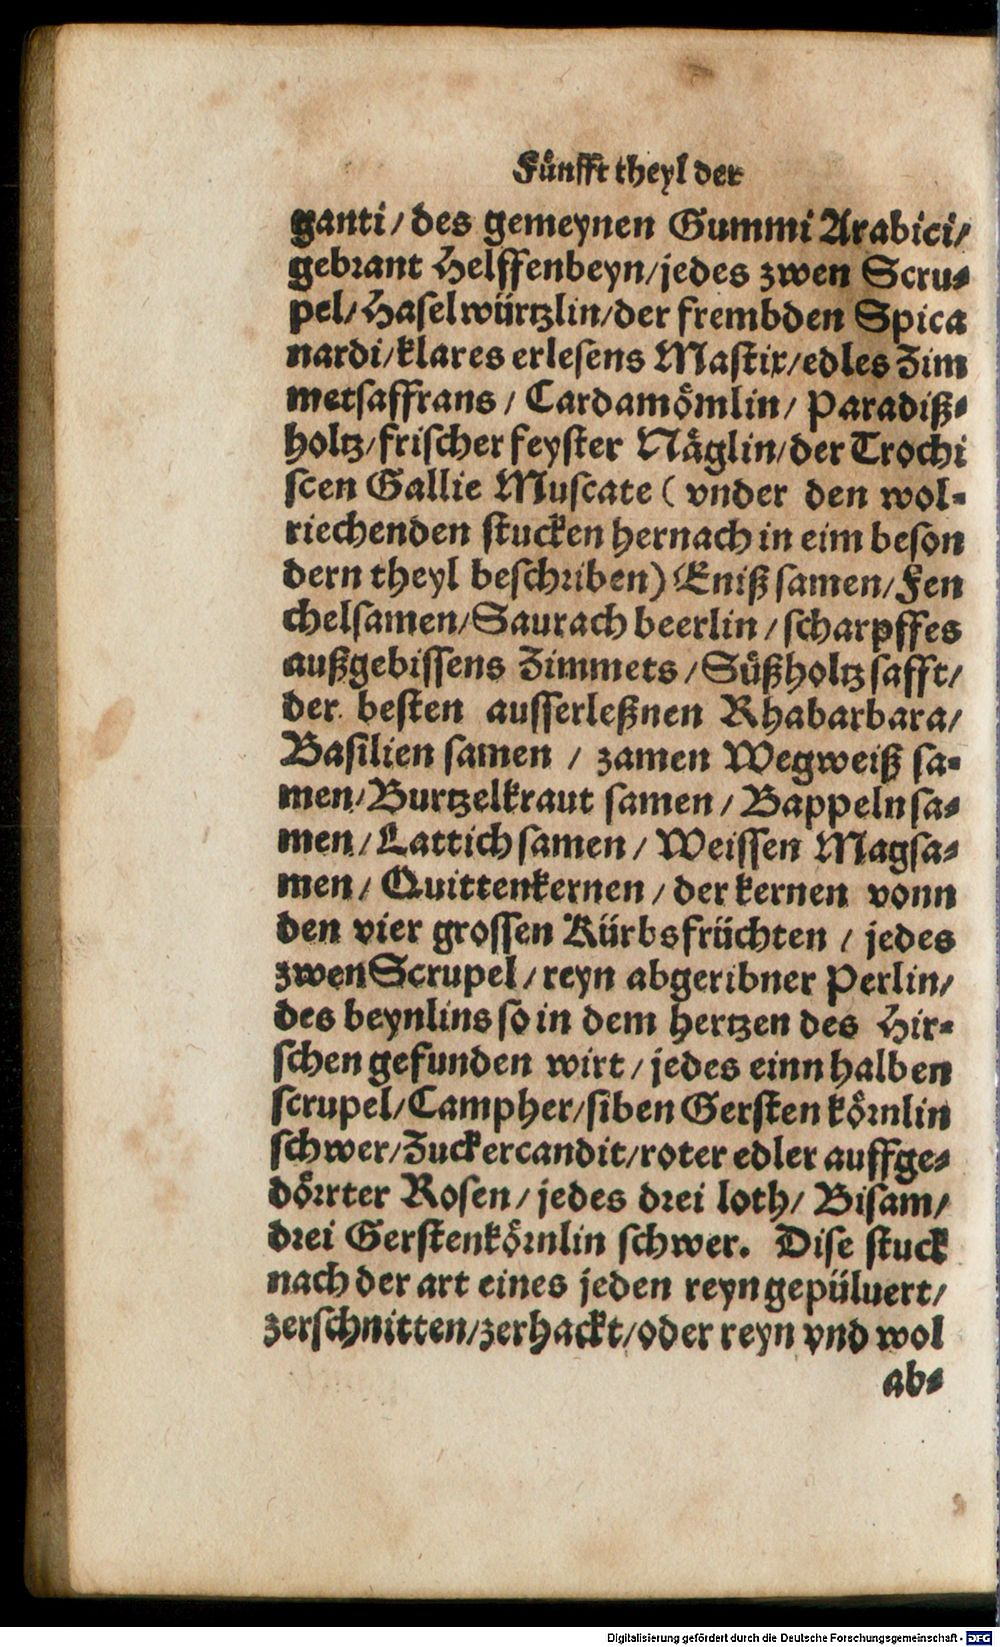 Fünfft theyl der
ganti/ des gemeynen Gummi Arabici/
gebrant Helffenbeyn/ jedes zwen Scru-
pel/ Haselwürtzlin/ der frembden Spica
nardi/ klares erlesens Mastix/ edles Zim
metsaffrans / Cardamömlin/ Paradiß-
holtz/ frischer feyster Näglin/ der Trochi
scen Gallie Muscate ( vnder den wol-
riechenden stucken hernach in eim beson
dern theyl beschriben) Eniß samen/ Fen
chelsamen/ Saurach beerlin / scharpffes
außgebissens Zimmets / Süßholtz safft/
der besten ausserleßnen Rhabarbara/
Basilien samen / zamen Wegweiß sa-
men/ Burtzelkraut samen / Bappeln sa-
men / Lattich samen / Weissen Magsa-
men / Quittenkernen / der kernen vonn
den vier grossen Kürbsfrüchten / jedes
zwen Scrupel / reyn abgeribner Perlin/
des beynlins so in dem hertzen des Hir-
schen gefunden wirt / jedes einn halben
scrupel/ Campher/ siben Gersten körnlin
schwer/ Zuckercandit/ roter edler auffge-
dörrter Rosen / jedes drei loth/ Bisam/
drei Gerstenkörnlin schwer. Dise stuck
nach der art eines jeden reyn gepüluert/
zerschnitten/ zerhackt/ oder reyn vnd wol
ab-
Digitalisierung gefördert durch die Deutsche Forschungsgemeinschaft - DFG